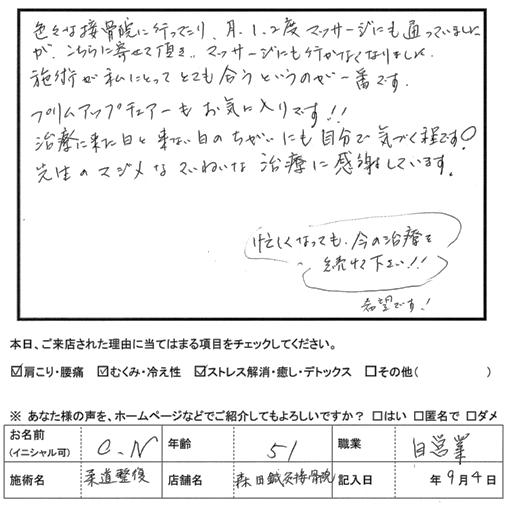 色々な接骨院に行ってたり、月、1、2度マッサージにも通っていました
が、こちらに寄せて頂き、マッサージにも行かなくなりました。
施術が私にとってとても合うというのが一番です。
プリムアップチェアーもお気に入りです!!
治療に来た日と来ない日のちがいにも自分で気づく程です。
先生のマジメなていねいな治療に感謝しています。
忙しくなっても、今の治療を
続けて下さい!!
希望です!
本日、ご来店された理由に当てはまる項目をチェックしてください。
☑肩こり・腰痛 ☑むくみ・冷え性 ☑ストレス解消・癒し・デトックス □その他( )
※ あなた様の声を、ホームページなどでご紹介してもよろしいですか? □はい □匿名で □ダメ
お名前(イニシャル可) O.N 年齢 51 職業 自営業
施術名 柔道整復 店舗名 森田鍼灸接骨院 記入日 年9月4日